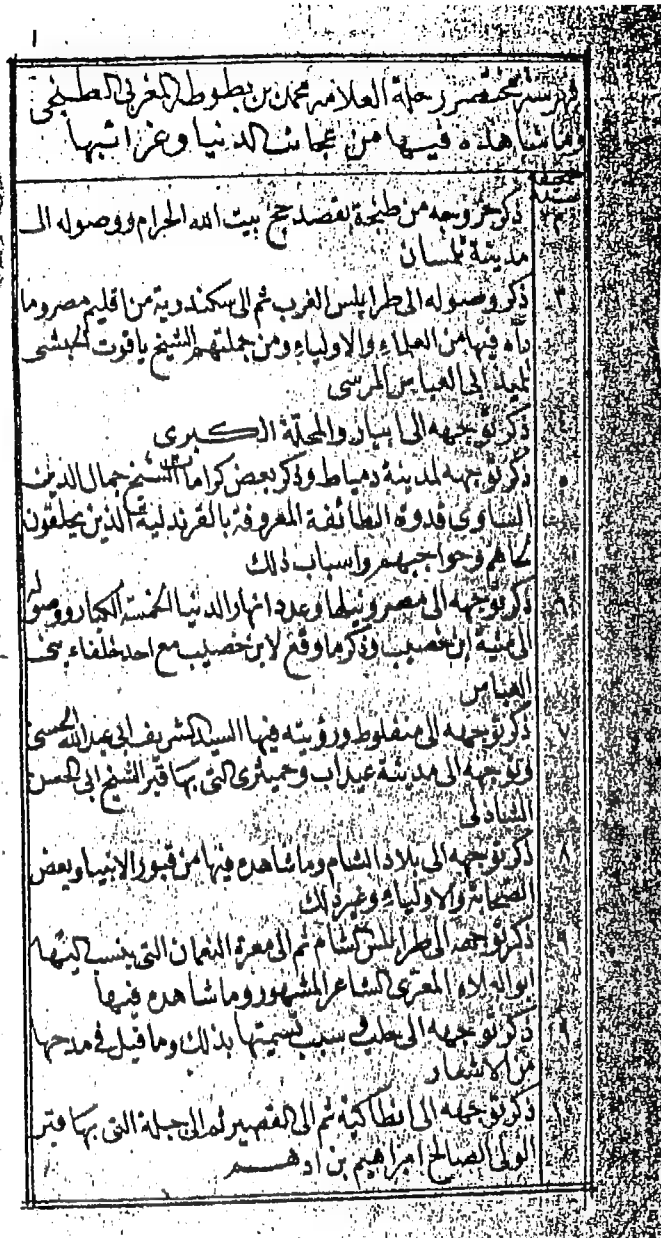 ١
فهرسة مختصر رحلة العلامه محمد بن بطوطه المغربى الطنجى
وما شاهده فيها من عجائب الدنيا وغرائبها
صحيفة
٢ ذكر خروجه من طنجة بقصد حج بيت الله الحرام ووصوله الى
مدينة تلمسان
٣ ذكر وصوله الى طرابلس الغرب ثم الى سكندرية من اقليم مصر وما
رآه فيها من العلماء والاولياء ومن جملتهم الشيخ ياقوت الحبشى
تلميذ ابى العباس المرسى
٤ ذكر توجهه الى ابيار والمحلة الكبرى
٥ ذكر توجهه لمدينة دمياط وذكر بعض كرامات الشيخ جمال الدين
الساوى قدوة الطائفة المعروفة بالقرندلية الذين يحلقون
لحاهم وحواجبهم واسباب ذلك
٦ ذكر توجهه الى مصر ونيلها وعدد انهار الدنيا الخمسة الكبار ووصوله
الى منية ابن خصيب وذكر ما وقع لابن خصيب مع احد خلفاء بنى
العباس
٧ ذكر توجهه الى منفلوط ورؤيته فيها السيد الشريف ابى عبد الله الحسنى
وتوجهه الى مدينة عيذاب وحميثرى التى بها قبر الشيخ ابى الحسن
الشاذلى
٨ ذكر توجهه الى بلاد الشام وما شاهده فيها من قبور الانبيا وبعض
الصحابة والاولياء وغير ذلك
٩ ذكر توجهه الى طرابلس الشام ثم الى معرة النعمان التى ينسب اليها
ابو العلاء المعرى الشاعر المشهور وما شاهده فيها
٩ ذكر توجهه الى حلب وسبب تسميتها بذلك وما قيل فى مدحها
من الاشعار
١٠ ذكر توجهه الى انطاكية ثم الى القصير ثم الى جبلة التى بها قبر
الولى الصالح ابراهيم بن ادهم